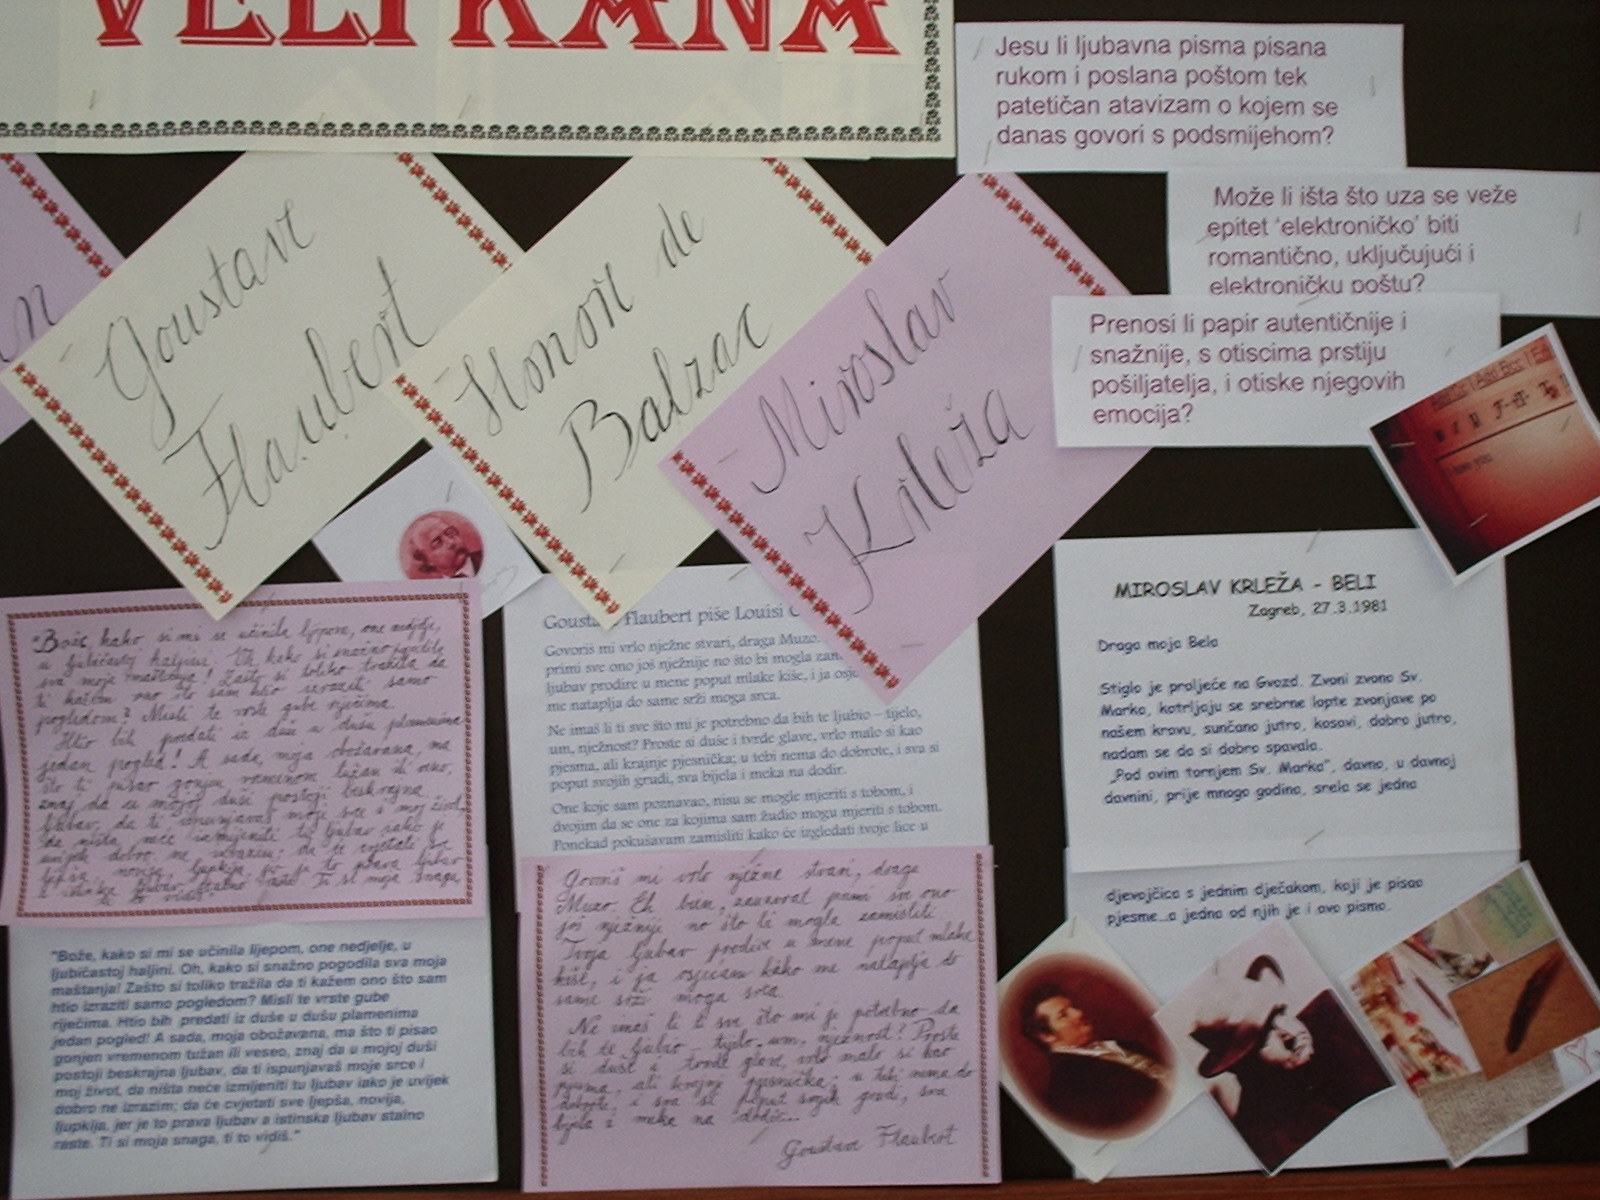 VELIKANA
Jesu li ljubavna pisma pisana
rukom i poslana poštom tek
patetičan atavizam o kojem se
danas govori s podsmijehom?
Može li išta što uza se veže
epitet 'elektroničko' biti
romantično, uključujući i
elektroničku poštu?
Prenosi li papir autentičnije i
snažnije, s otiscima prstiju
pošiljatelja, i otiske njegovih
emocija?
Goustave
Flaubert
Honore de
Balzac
Miroslav
Krleža
"Bože, kako si mi se učinila lijepom, one nedjelje,
u ljubičastoj haljini. Oh kako si snažno pogodila
sva moja maštanja! Zašto si toliko tražila da
ti kažem ono što sam htio izraziti samo
pogledom? Misli te vrste gube riječima.
Htio bih predati iz duše u dušu plamenima
jedan pogled! A sada, moja obožavana, ma
što ti pisao gonjen vremenom tužan ili veseo,
znaj da u mojoj duši postoji beskrajna
ljubav, da ti ispunjavaš moje srce i moj život,
da ništa neće izmijeniti tu ljubav iako je
uvijek dobro ne izrazim; da će cvjetati sve
ljepša, novija, ljupkija, jer je to prava ljubav
a istinska ljubav stalno raste. Ti si moja snaga
ti to vidiš."
"Bože, kako si mi se učinila lijepom, one nedjelje, u
ljubičastoj haljini. Oh, kako si snažno pogodila sva moja
maštanja! Zašto si toliko tražila da ti kažem ono što sam
htio izraziti samo pogledom? Misli te vrste gube
riječima. Htio bih predati iz duše u dušu plamenima
jedan pogled! A sada, moja obožavana, ma što ti pisao
gonjen vremenom tužan ili veseo, znaj da u mojoj duši
postoji beskrajna ljubav, da ti ispunjavaš moje srce i
moj život, da ništa neće izmijeniti tu ljubav iako je uvijek
dobro ne izrazim; da će cvjetati sve ljepša, novija,
ljupkija, jer je to prava ljubav a istinska ljubav stalno
raste. Ti si moja snaga, ti to vidiš."
Flaubert piše Louisi
Govoriš mi vrlo nježne stvari, draga Muzo.
primi sve ono još nježnije no što bi mogla
ljubav prodire u mene poput mlake kiše, i ja
me nataplja do same srži moga srca.
Ne imaš li ti sve što mi je potrebno da bih te ljubio – tijelo,
um, nježnost? Proste si duše i tvrde glave, vrlo malo si kao
pjesma, ali krajnje pjesnička; u tebi nema do dobrote, i sva si
poput svojih grudi, sva bijela i meka na dodir.
One koje sam poznavao, nisu se mogle mjeriti s tobom, i
dvojim da se one za kojima sam žudio mogu mjeriti s tobom.
Ponekad pokušavam zamisliti kako će izgledati tvoje lice u
Govoriš mi vrlo nježne stvari, draga
Muzo. Eh bien, zauzvrat primi sve ono
još nježnije no što bi mogla zamisliti.
Tvoja ljubav prodire u mene poput mlake
kiše, i ja osjećam kako me nataplja do
same srži moga srca.
Ne imaš li ti sve što mi je potrebno da
bih te ljubio – tijelo, um, nježnost? Proste
si duše i tvrde glave, vrlo malo si kao
pjesma, ali krajnje pjesnička; u tebi nema do
dobrote, i sva si poput svojih grudi, sva
bijela i meka na dodir...
Goustave Flaubert
MIROSLAV KRLEŽA - BELI
Zagreb, 27.3.1981
Draga moja Bela
Stiglo je proljeće na Gvozd. Zvoni zvono Sv.
Marka, kotrljaju se srebrne lopte zvonjave po
našem krovu, sunčano jutro, kosovi, dobro jutro,
nadam se da si dobro spavala.
„Pod ovim tornjem Sv. Marka", davno, u davnoj
davnini, prije mnogo godina, srela se jedna
djevojčica s jednim dječakom, koji je pisao
pjesme...a jedna od njih je i ovo pismo.